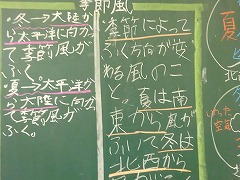 季節風
・冬→大陸か
ら太平洋に向か
って季節風が
ふく。
・夏→太平洋か
ら大陸に向か
って季節風が
ふく。
季節によって
ふく方向が変
わる風のこ
と。夏は南
東から風が
ふいて冬は
北西から
夏
北
った空気